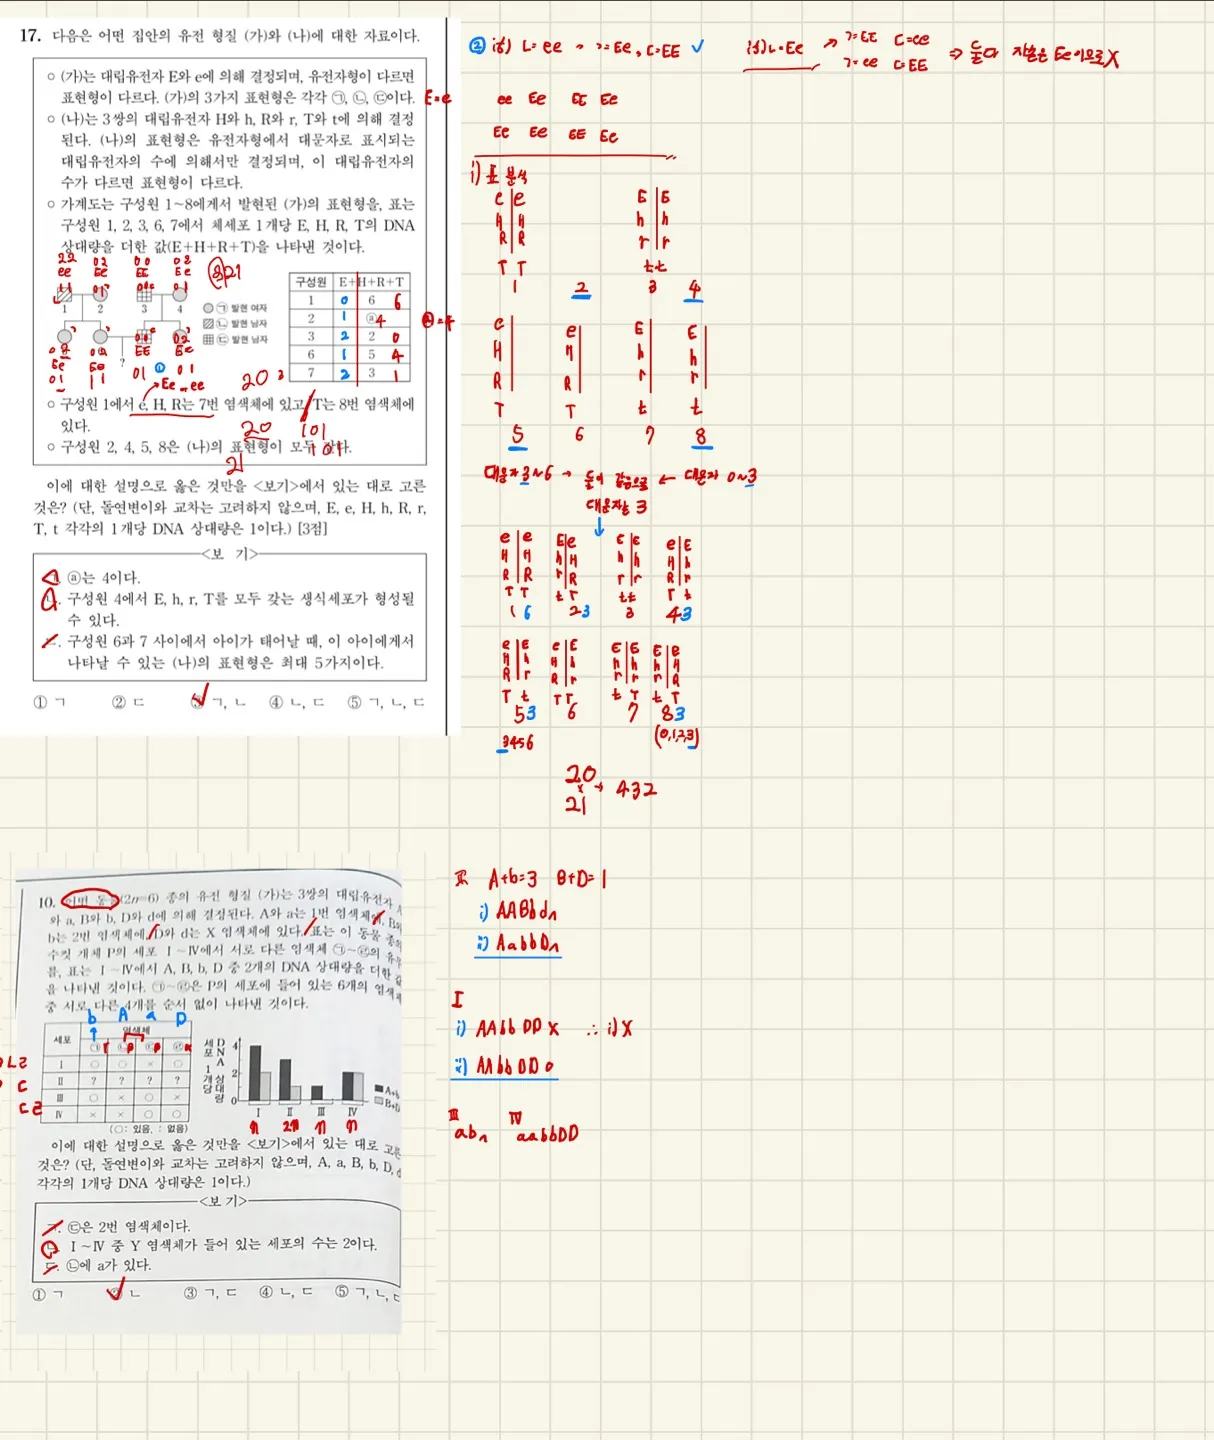 17. 다음은 어떤 집안의 유전 형질 (가)와 (나)에 대한 자료이다.
○ (가)는 대립유전자 E와 e에 의해 결정되며, 유전자형이 다르면
표현형이 다르다. (가)의 3가지 표현형은 각각 ㉠, ㉡, ㉢이다.
○ (나)는 3쌍의 대립유전자 H와 h, R와 r, T와 t에 의해 결정
된다. (나)의 표현형은 유전자형에서 대문자로 표시되는
대립유전자의 수에 의해서만 결정되며, 이 대립유전자의
수가 다르면 표현형이 다르다.
○ 가계도는 구성원 1~8에게서 발현된 (가)의 표현형을, 표는
구성원 1, 2, 3, 6, 7에서 체세포 1개당 E, H, R, T의 DNA
상대량을 더한 값(E+H+R+T)을 나타낸 것이다.
1 2 3 4
?
㉠ 발현 여자
㉡ 발현 남자
㉢ 발현 남자
구성원 E+H+R+T
1 0 6 6
2 1 ⓐ 4
3 2 2 0
6 1 5 4
7 2 3 1
○ 구성원 1에서 e, H, R는 7번 염색체에 있고, T는 8번 염색체에
있다.
○ 구성원 2, 4, 5, 8은 (나)의 표현형이 모두 같다.
이에 대한 설명으로 옳은 것만을 <보기>에서 있는 대로 고른
것은? (단, 돌연변이와 교차는 고려하지 않으며, E, e, H, h, R, r,
T, t 각각의 1개당 DNA 상대량은 1이다.) [3점]
<보 기>
ㄱ. ⓐ는 4이다.
ㄴ. 구성원 4에서 E, h, r, T를 모두 갖는 생식세포가 형성될
수 있다.
ㄷ. 구성원 6과 7 사이에서 아이가 태어날 때, 이 아이에게서
나타날 수 있는 (나)의 표현형은 최대 5가지이다.
① ㄱ ② ㄷ ③ ㄱ, ㄴ ④ ㄴ, ㄷ ⑤ ㄱ, ㄴ, ㄷ
② if) ㄴ=ee → ㄱ=Ee, ㄷ=EE ✓
if) ㄴ=Ee → ㄱ=EE ㄷ=ee
ㄱ=ee ㄷ=EE
⇒ 둘다 자손은 Ee이므로 X
ee Ee EE Ee
Ee Ee EE Ee
i) 표 분석
e e E E
H H h h
R R r r
T T t t
1 2 3 4
e e E E
H H h h
R R r r
T T t t
5 6 7 8
대문자 3~6 → 둘이 같음으로 ← 대문자 0~3
대문자는 3
1 6 2 3 3 4 3
5 3 6 7 8 3
3456 (0,1,2,3)
20
x → 432
21
10. 어떤 동물(2n=6) 종의 유전 형질 (가)는 3쌍의 대립유전자 A
와 a, B와 b, D와 d에 의해 결정된다. A와 a는 1번 염색체에, B와
b는 2번 염색체에, D와 d는 X 염색체에 있다. 표는 이 동물 종의
수컷 개체 P의 세포 Ⅰ~Ⅳ에서 서로 다른 염색체 ㉠~㉣의 유무
를, 표는 Ⅰ~Ⅳ에서 A, B, b, D 중 2개의 DNA 상대량을 더한 값
을 나타낸 것이다. ㉠~㉣은 P의 세포에 들어 있는 6개의 염색체
중 서로 다른 4개를 순서 없이 나타낸 것이다.
b A a D
세포 염색체
㉠ ㉡ ㉢ ㉣
Ⅰ ○ ○ × ○
Ⅱ ? ? ? ?
Ⅲ ○ × ○ ×
Ⅳ × × ○ ○
(○: 있음, ×: 없음)
세포 1개당 DNA 상대량
4
2
0
Ⅰ Ⅱ Ⅲ Ⅳ
n 2n n n
A+b
B+D
이에 대한 설명으로 옳은 것만을 <보기>에서 있는 대로 고른
것은? (단, 돌연변이와 교차는 고려하지 않으며, A, a, B, b, D, d
각각의 1개당 DNA 상대량은 1이다.)
<보 기>
ㄱ. ㉢은 2번 염색체이다.
ㄴ. Ⅰ~Ⅳ 중 Y 염색체가 들어 있는 세포의 수는 2이다.
ㄷ. ㉡에 a가 있다.
① ㄱ ② ㄴ ③ ㄱ, ㄷ ④ ㄴ, ㄷ ⑤ ㄱ, ㄴ, ㄷ
Ⅱ A+b=3 B+D=1
i) AABbd
ii) AabbD
Ⅰ
i) AAbbDD X ∴ i) X
ii) AAbbDD o
Ⅲ ab
Ⅳ aabbDD